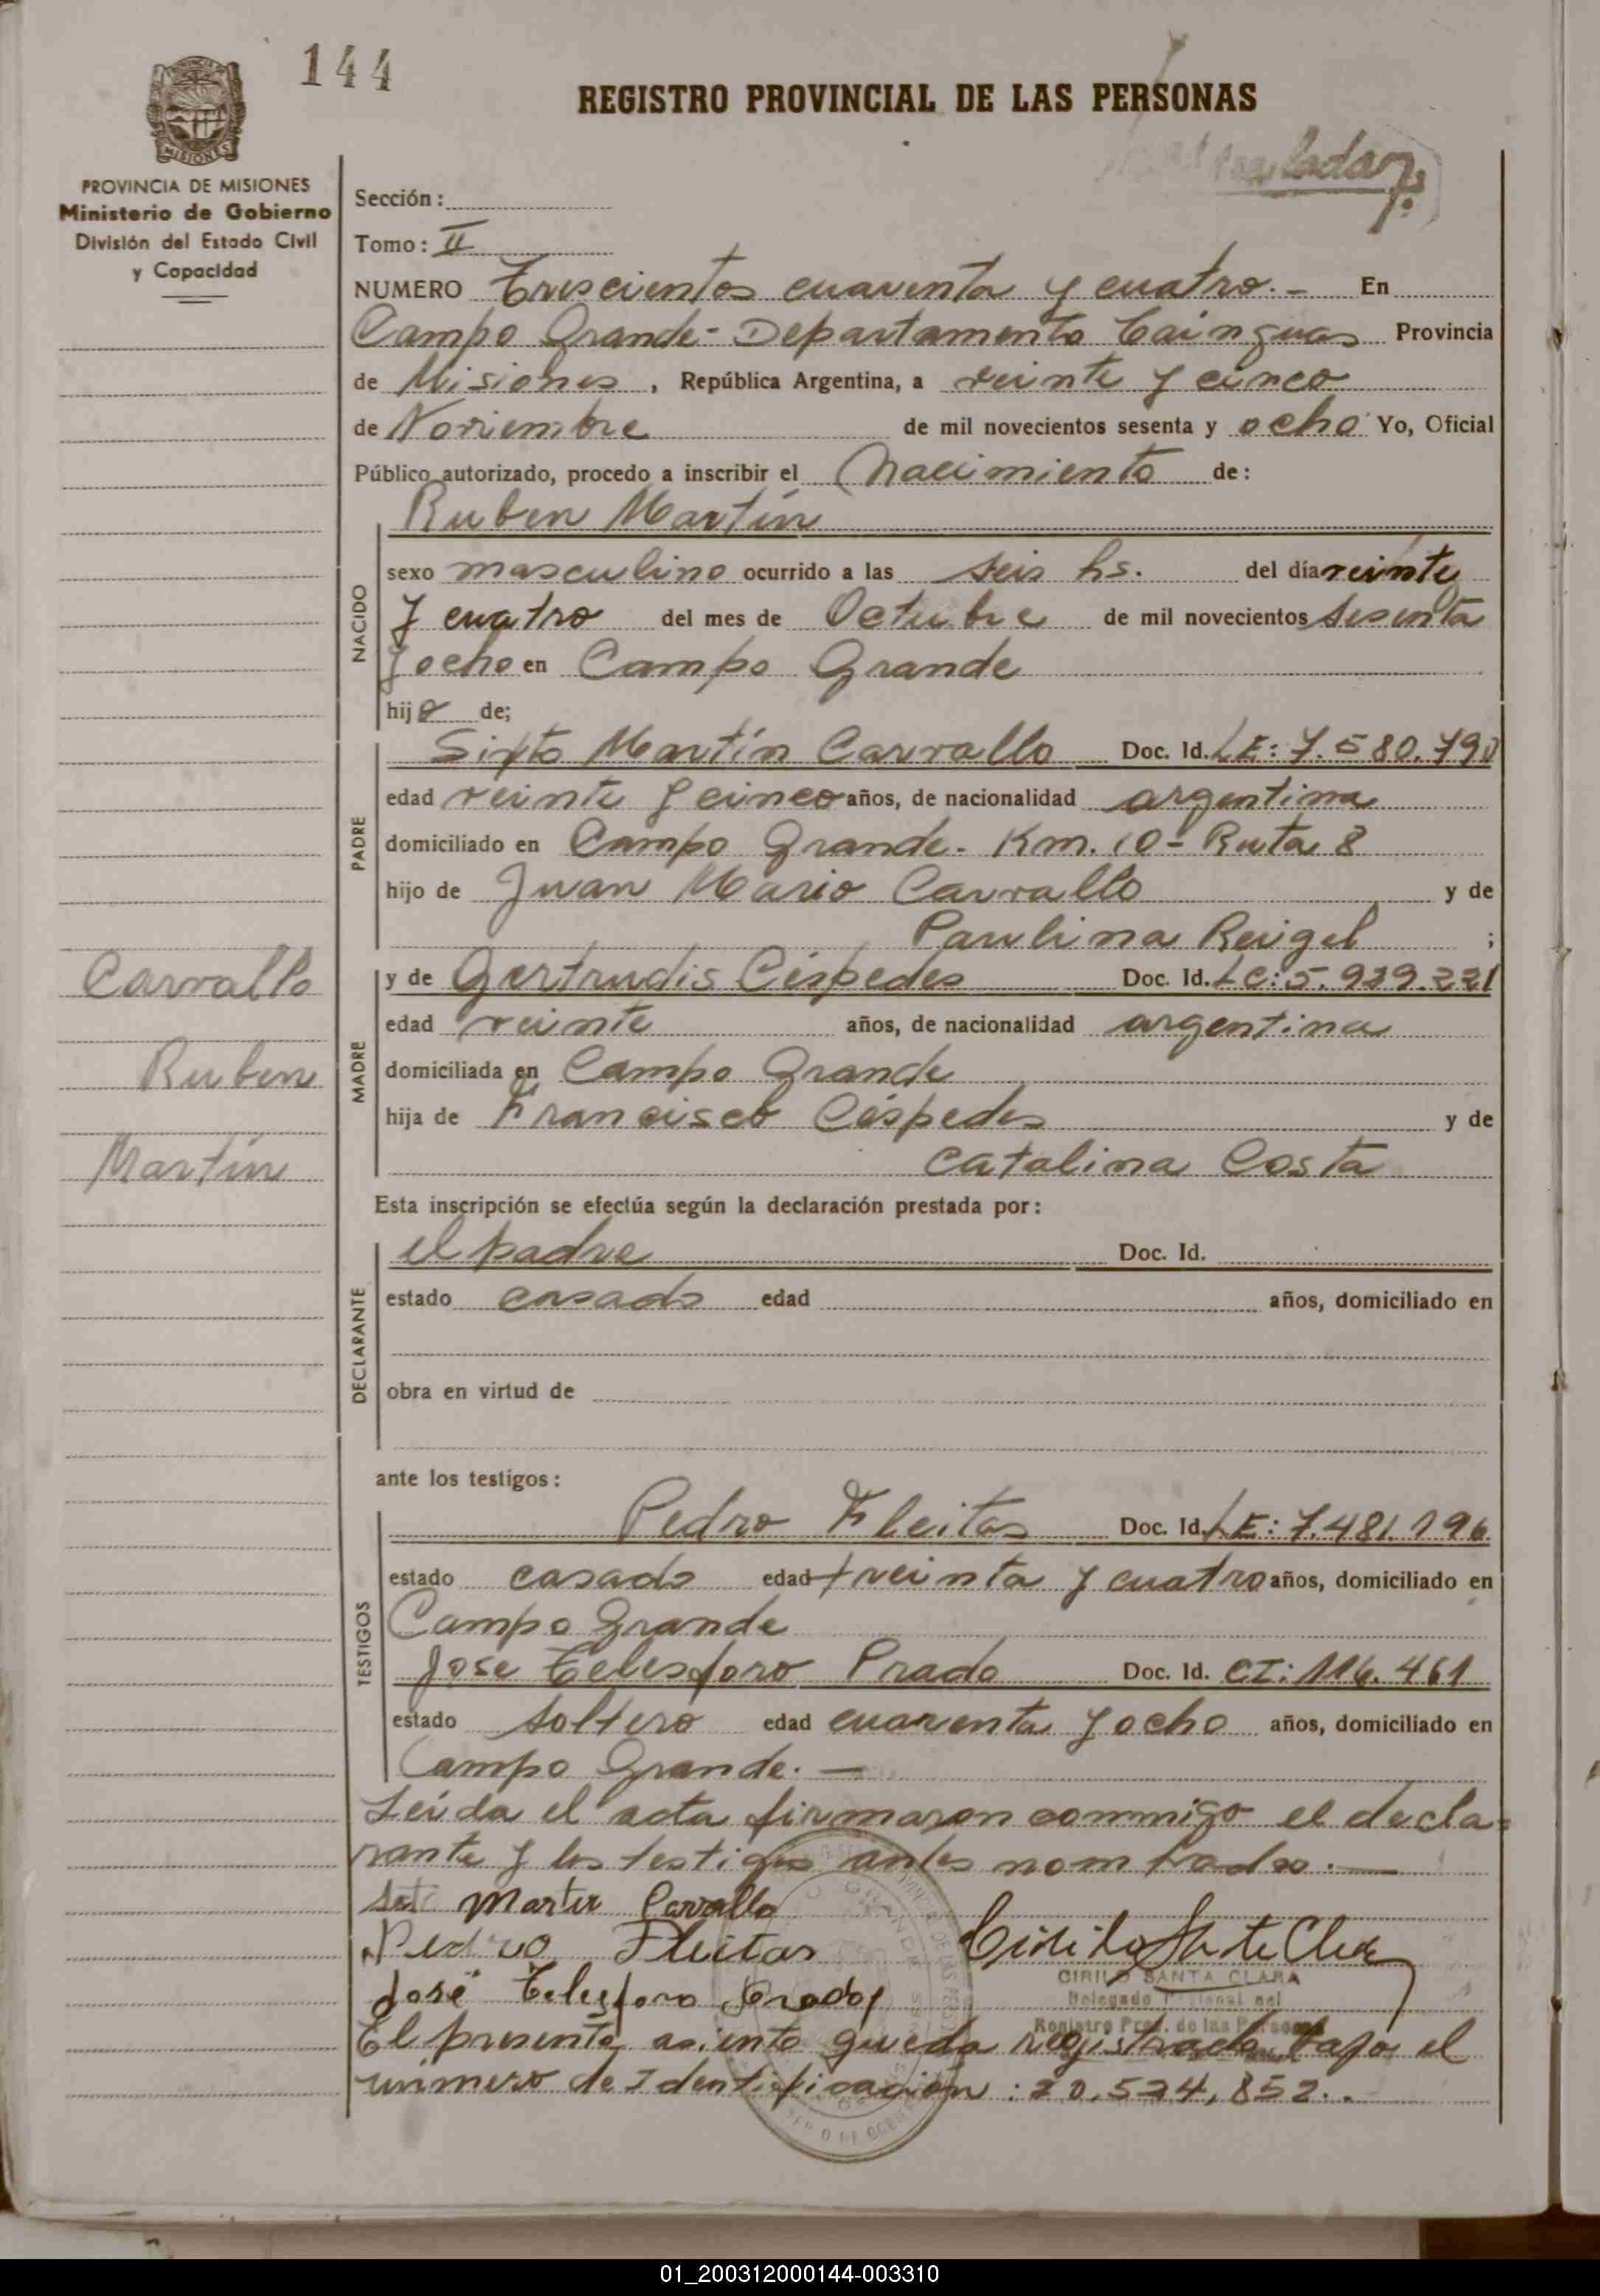 144
REGISTRO PROVINCIAL DE LAS PERSONAS
MISIONES
PROVINCIA DE MISIONES
Ministerio de Gobierno
División del Estado Civil
y Capacidad
Sección:
Tomo: II
NUMERO Trescientos cuarenta y cuatro.- En
Campo Grande- Departamento Cainguas Provincia
de Misiones, República Argentina, a veinte y cinco
de Noviembre de mil novecientos sesenta y ocho Yo, Oficial
Público autorizado, procedo a inscribir el Nacimiento de:
Ruben Martín
NACIDO
sexo masculino ocurrido a las seis hs. del día veinte
y cuatro del mes de Octubre de mil novecientos sesenta
y ocho en Campo Grande
hijo de;
PADRE
Sixto Martín Carvallo Doc. Id. LE: 7.580.790
edad veinte y cinco años, de nacionalidad argentina
domiciliado en Campo Grande- Km. 10- Ruta 8
hijo de Juan Mario Carvallo y de
Paulina Reigel ;
MADRE
y de Gertrudis Céspedes Doc. Id. LC: 5.929.221
edad veinte años, de nacionalidad argentina
domiciliada en Campo Grande
hija de Francisco Céspedes y de
Catalina Costa
Carvallo
Ruben
Martín
Esta inscripción se efectúa según la declaración prestada por:
DECLARANTE
el padre Doc. Id.
estado casado edad años, domiciliado en
obra en virtud de
ante los testigos:
TESTIGOS
Pedro Fleitas Doc. Id. LE: 7.481.196
estado casado edad treinta y cuatro años, domiciliado en
Campo Grande
Jose Telesforo Prado Doc. Id. CI: 116.461
estado soltero edad cuarenta y ocho años, domiciliado en
Campo Grande.—
Leída el acta firmaron conmigo el decla-
rante y los testigos antes nombrados.—
Martin Carvallo
Pedro Fleitas
José Telesforo Prado
CIRILO SANTA CLARA
Delegado
Registro Prov. de las Personas
El presente asiento queda registrado bajo el
número de Identificación: 20.524,852..
01_200312000144-003310